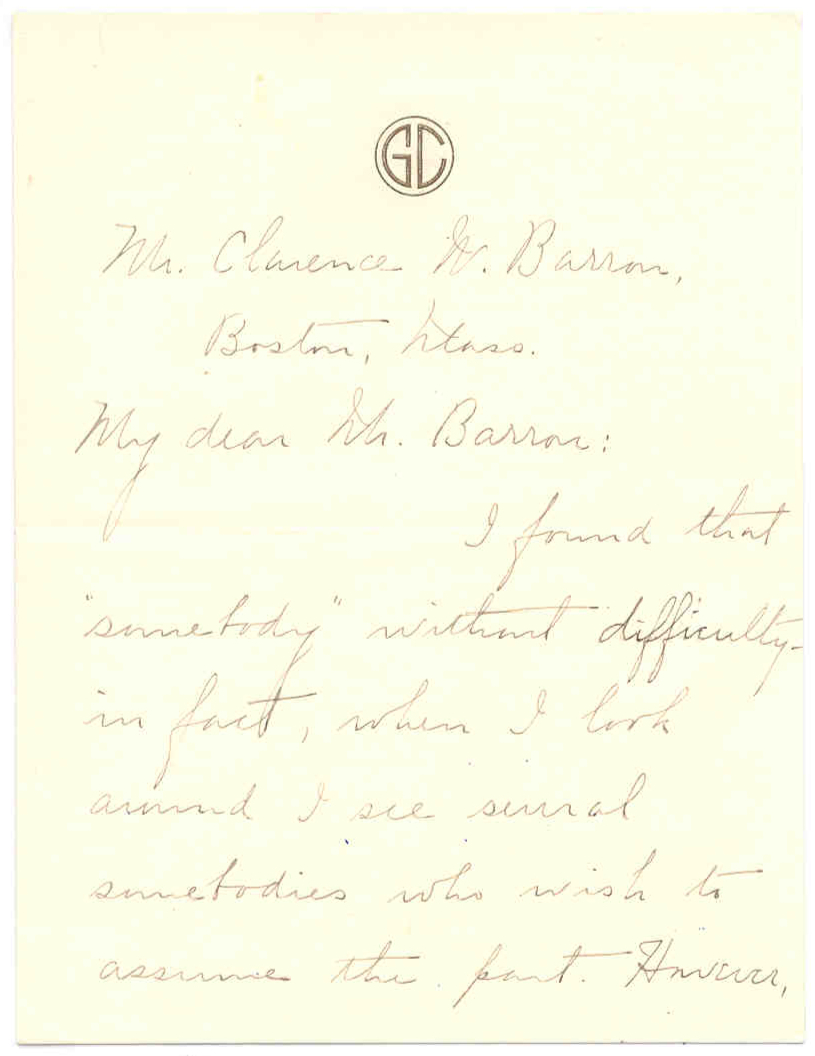 GC
Mr. Clarence W. Barron,
Boston, Mass.
My dear Mr. Barron:
I found that
"somebody" without difficulty-
in fact, when I look
around I see several
somebodies who wish to
assume the part. However,